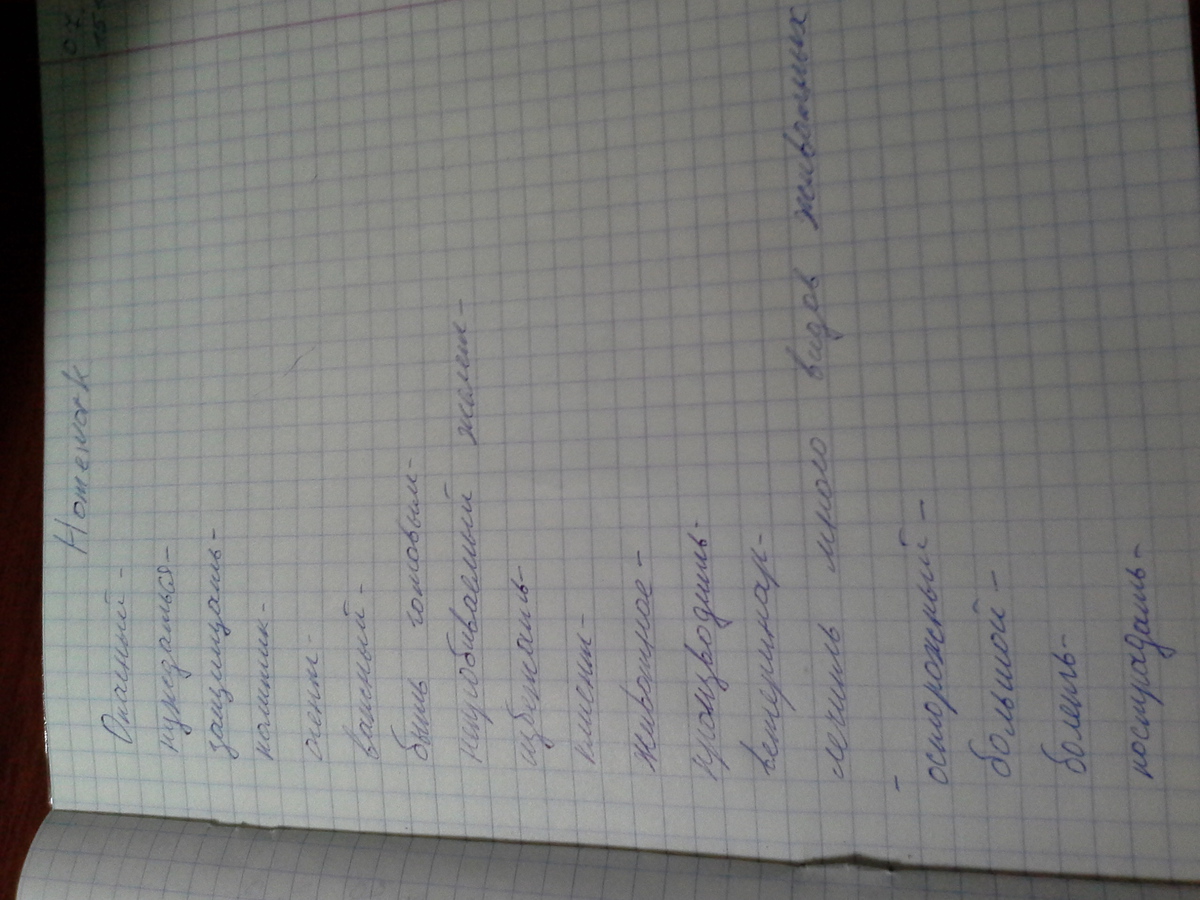 Homework
Опасный -
нуждаться-
защищать-
комик-
агент-
важный-
быть готовым-
пуробиваемый жилет-
избужать-
клиент-
животное-
производить-
ветеринар-
лечить много видов животных
-
осторожный-
большой-
болеть-
пострадать-